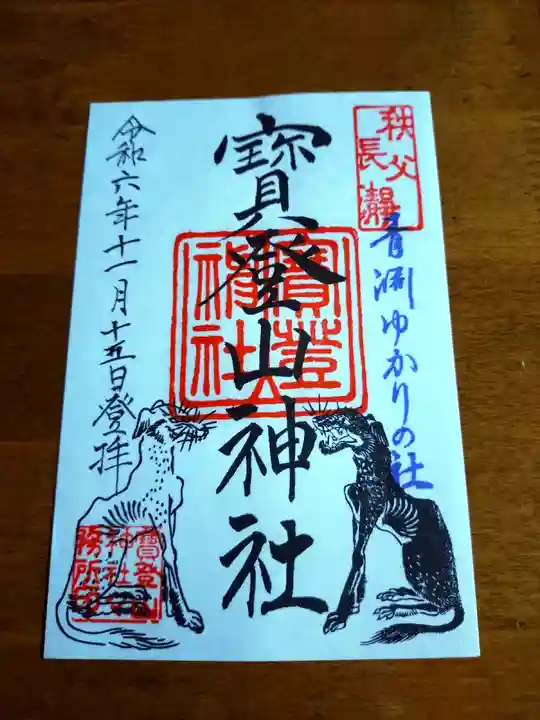 秩父
長瀞
青淵ゆかりの社
寳登山神社
寳登山
神社
令和六年十一月十五日登拝
寳登山
神社
務所